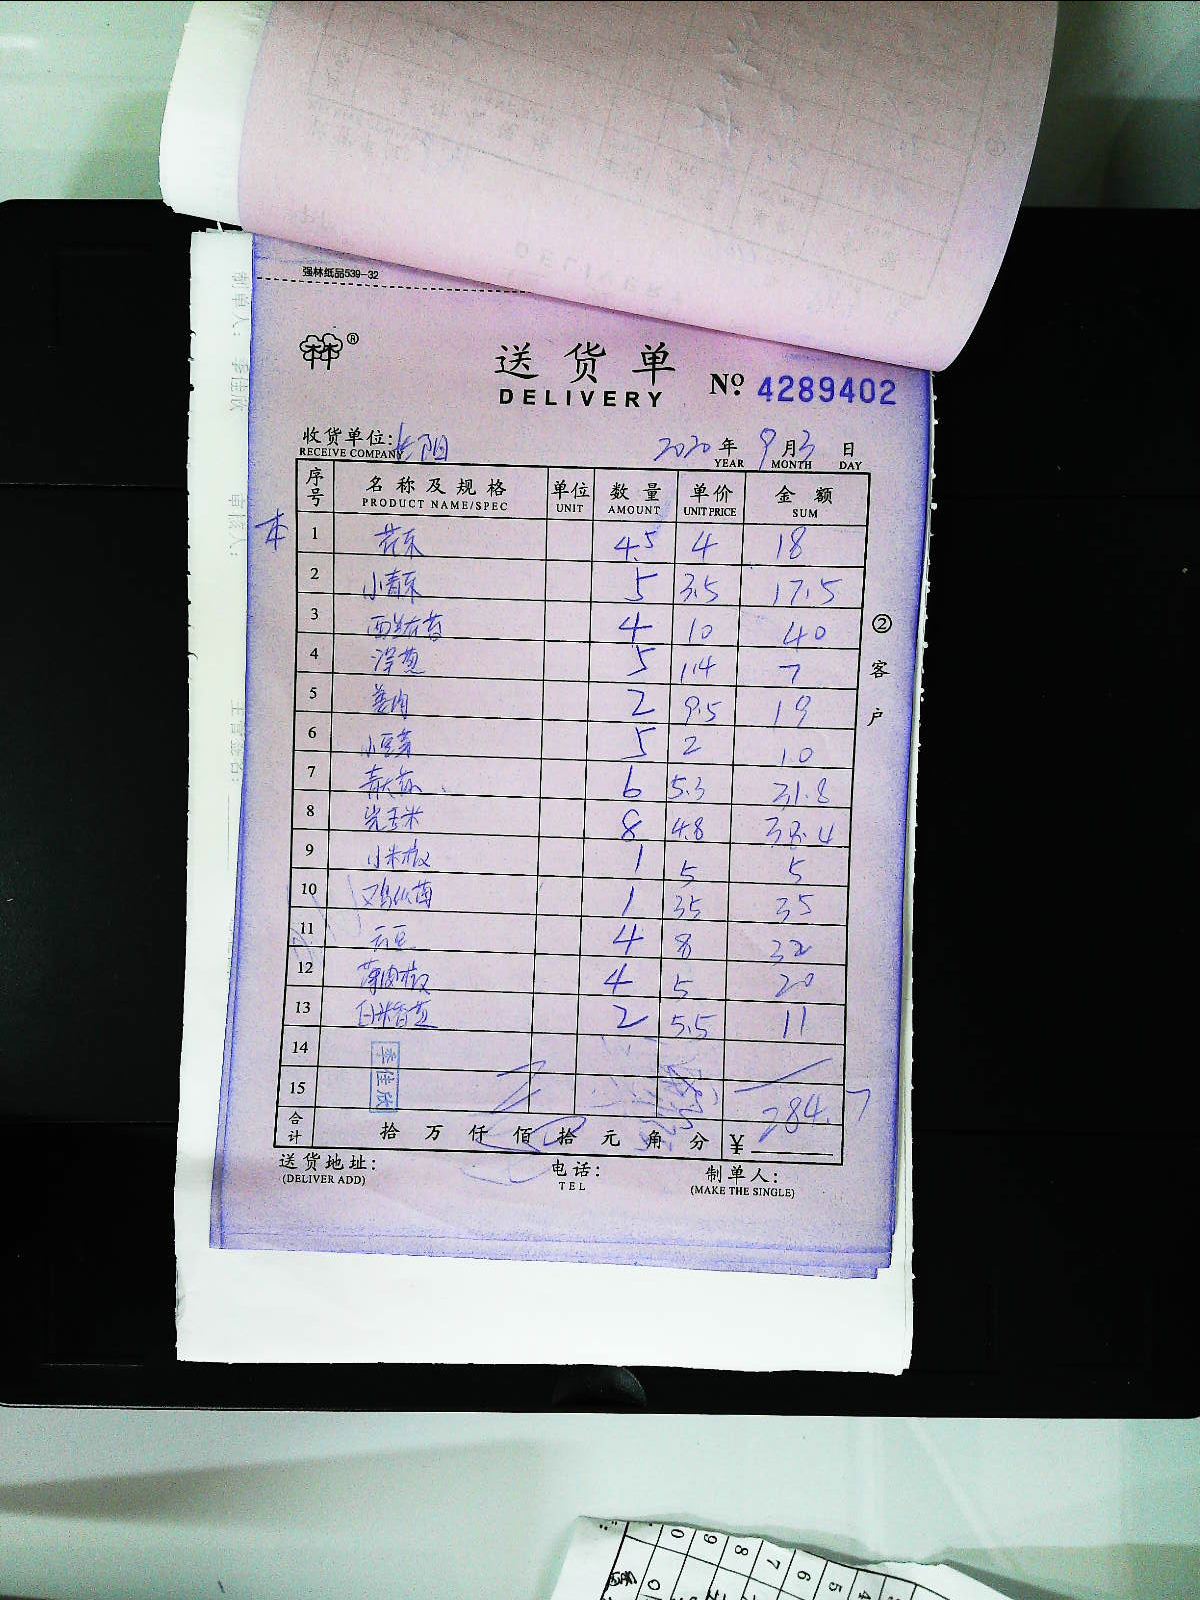 强林纸品539-32
送货单
DELIVERY
№ 4289402
收货单位: 长阳 2020 年 9 月 3 日
RECEIVE COMPANY YEAR MONTH DAY
序号 名称及规格 单位 数量 单价 金额
PRODUCT NAME/SPEC UNIT AMOUNT UNIT PRICE SUM
本
1 花菜 4.5 4 18
2 小青菜 5 3.5 17.5
3 西兰花苔 4 10 40
4 洋葱 5 1.4 7
5 姜肉 2 9.5 19
6 小豆芽 5 2 10
7 青大 6 5.3 31.8
8 玉米 8 4.8 38.4
9 小米椒 1 5 5
10 菌 1 35 35
11 云豆 4 8 32
12 薄肉椒 4 5 20
13 白米 2 5.5 11
14
李佳欣
15
284.7
合计 拾 万 仟 佰 拾 元 角 分 ¥
送货地址: 电话: 制单人:
(DELIVER ADD) TEL (MAKE THE SINGLE)
②客户
制单人: 李佳欣
审核人:
主管签名:
0 9 8 7 6 5 4